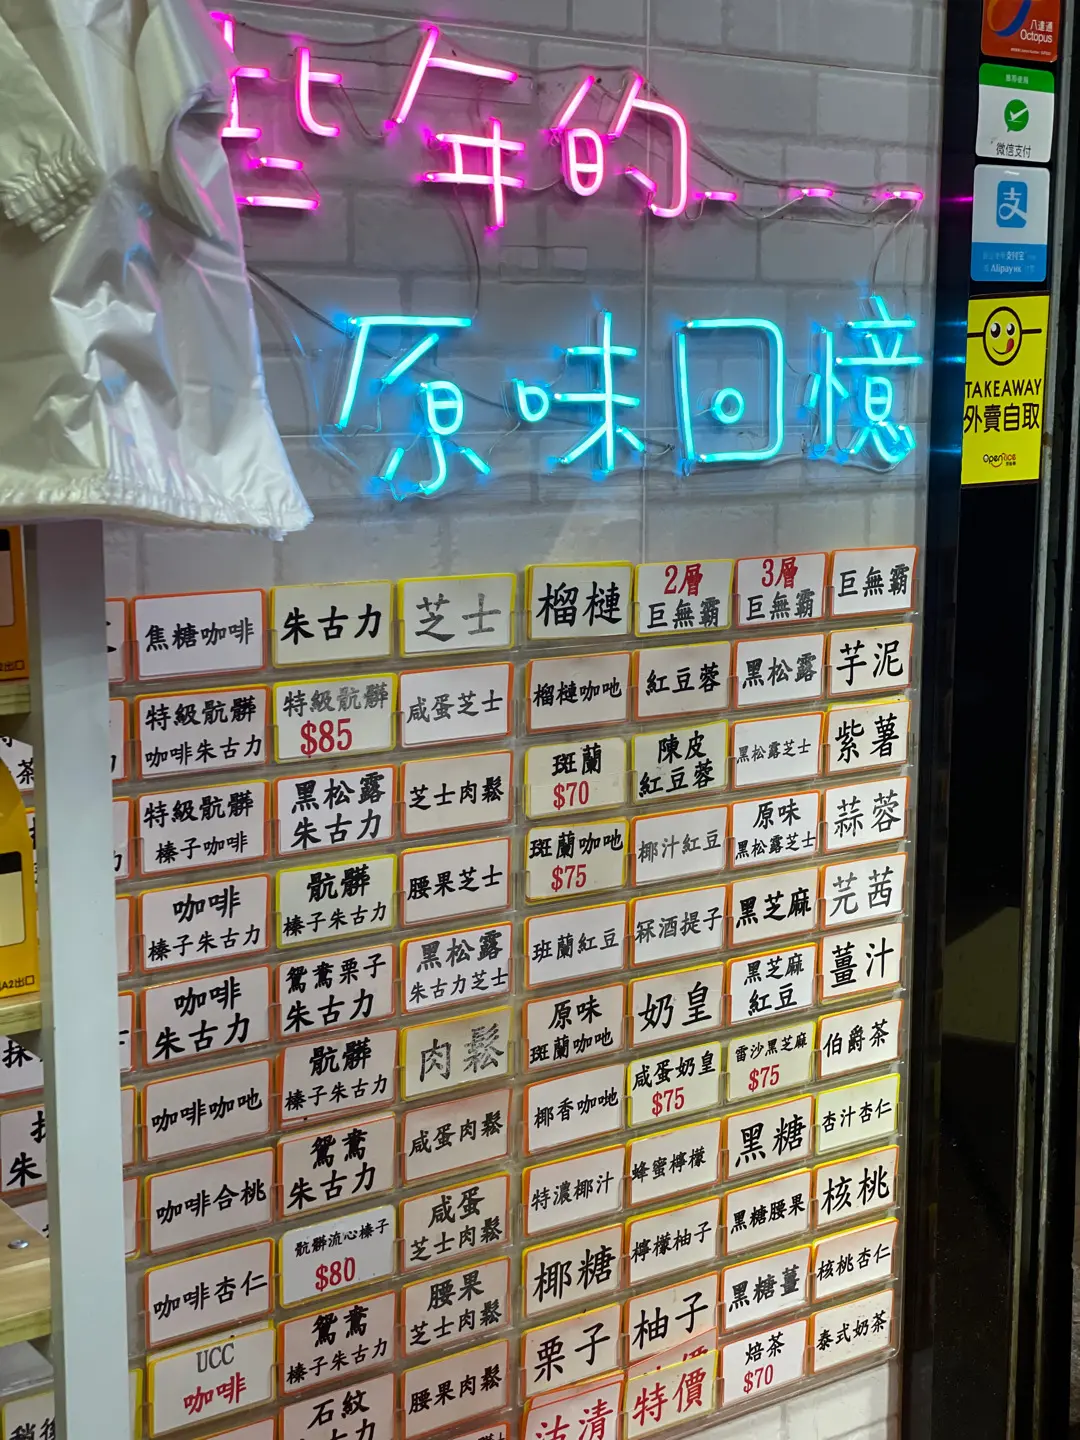 年的
原味回憶
八達通
Octopus
微信支付
支付宝
AlipayHK
TAKEAWAY
外賣自取
OpenRice
焦糖咖啡
特級骯髒
咖啡朱古力
特級骯髒
榛子咖啡
咖啡
榛子朱古力
咖啡
朱古力
咖啡咖吔
咖啡合桃
咖啡杏仁
UCC
咖啡
朱古力
特級骯髒
$85
黑松露
朱古力
骯髒
榛子朱古力
鴛鴦栗子
朱古力
骯髒
榛子朱古力
鴛鴦
朱古力
骯髒流心榛子
$80
鴛鴦
榛子朱古力
石紋
朱古力
芝士
咸蛋芝士
芝士肉鬆
腰果芝士
黑松露
朱古力芝士
肉鬆
咸蛋肉鬆
咸蛋
芝士肉鬆
腰果
芝士肉鬆
腰果肉鬆
榴槤
榴槤咖吔
斑蘭
$70
斑蘭咖吔
$75
班蘭紅豆
原味
斑蘭咖吔
椰香咖吔
特濃椰汁
椰糖
栗子
沽清
2層
巨無霸
紅豆蓉
陳皮
紅豆蓉
椰汁紅豆
冧酒提子
奶皇
咸蛋奶皇
$75
蜂蜜檸檬
檸檬柚子
柚子
特價
3層
巨無霸
黑松露
黑松露芝士
原味
黑松露芝士
黑芝麻
黑芝麻
紅豆
雷沙黑芝麻
$75
黑糖
黑糖腰果
黑糖薑
焙茶
$70
巨無霸
芋泥
紫薯
蒜蓉
芫茜
薑汁
伯爵茶
杏汁杏仁
核桃
核桃杏仁
泰式奶茶